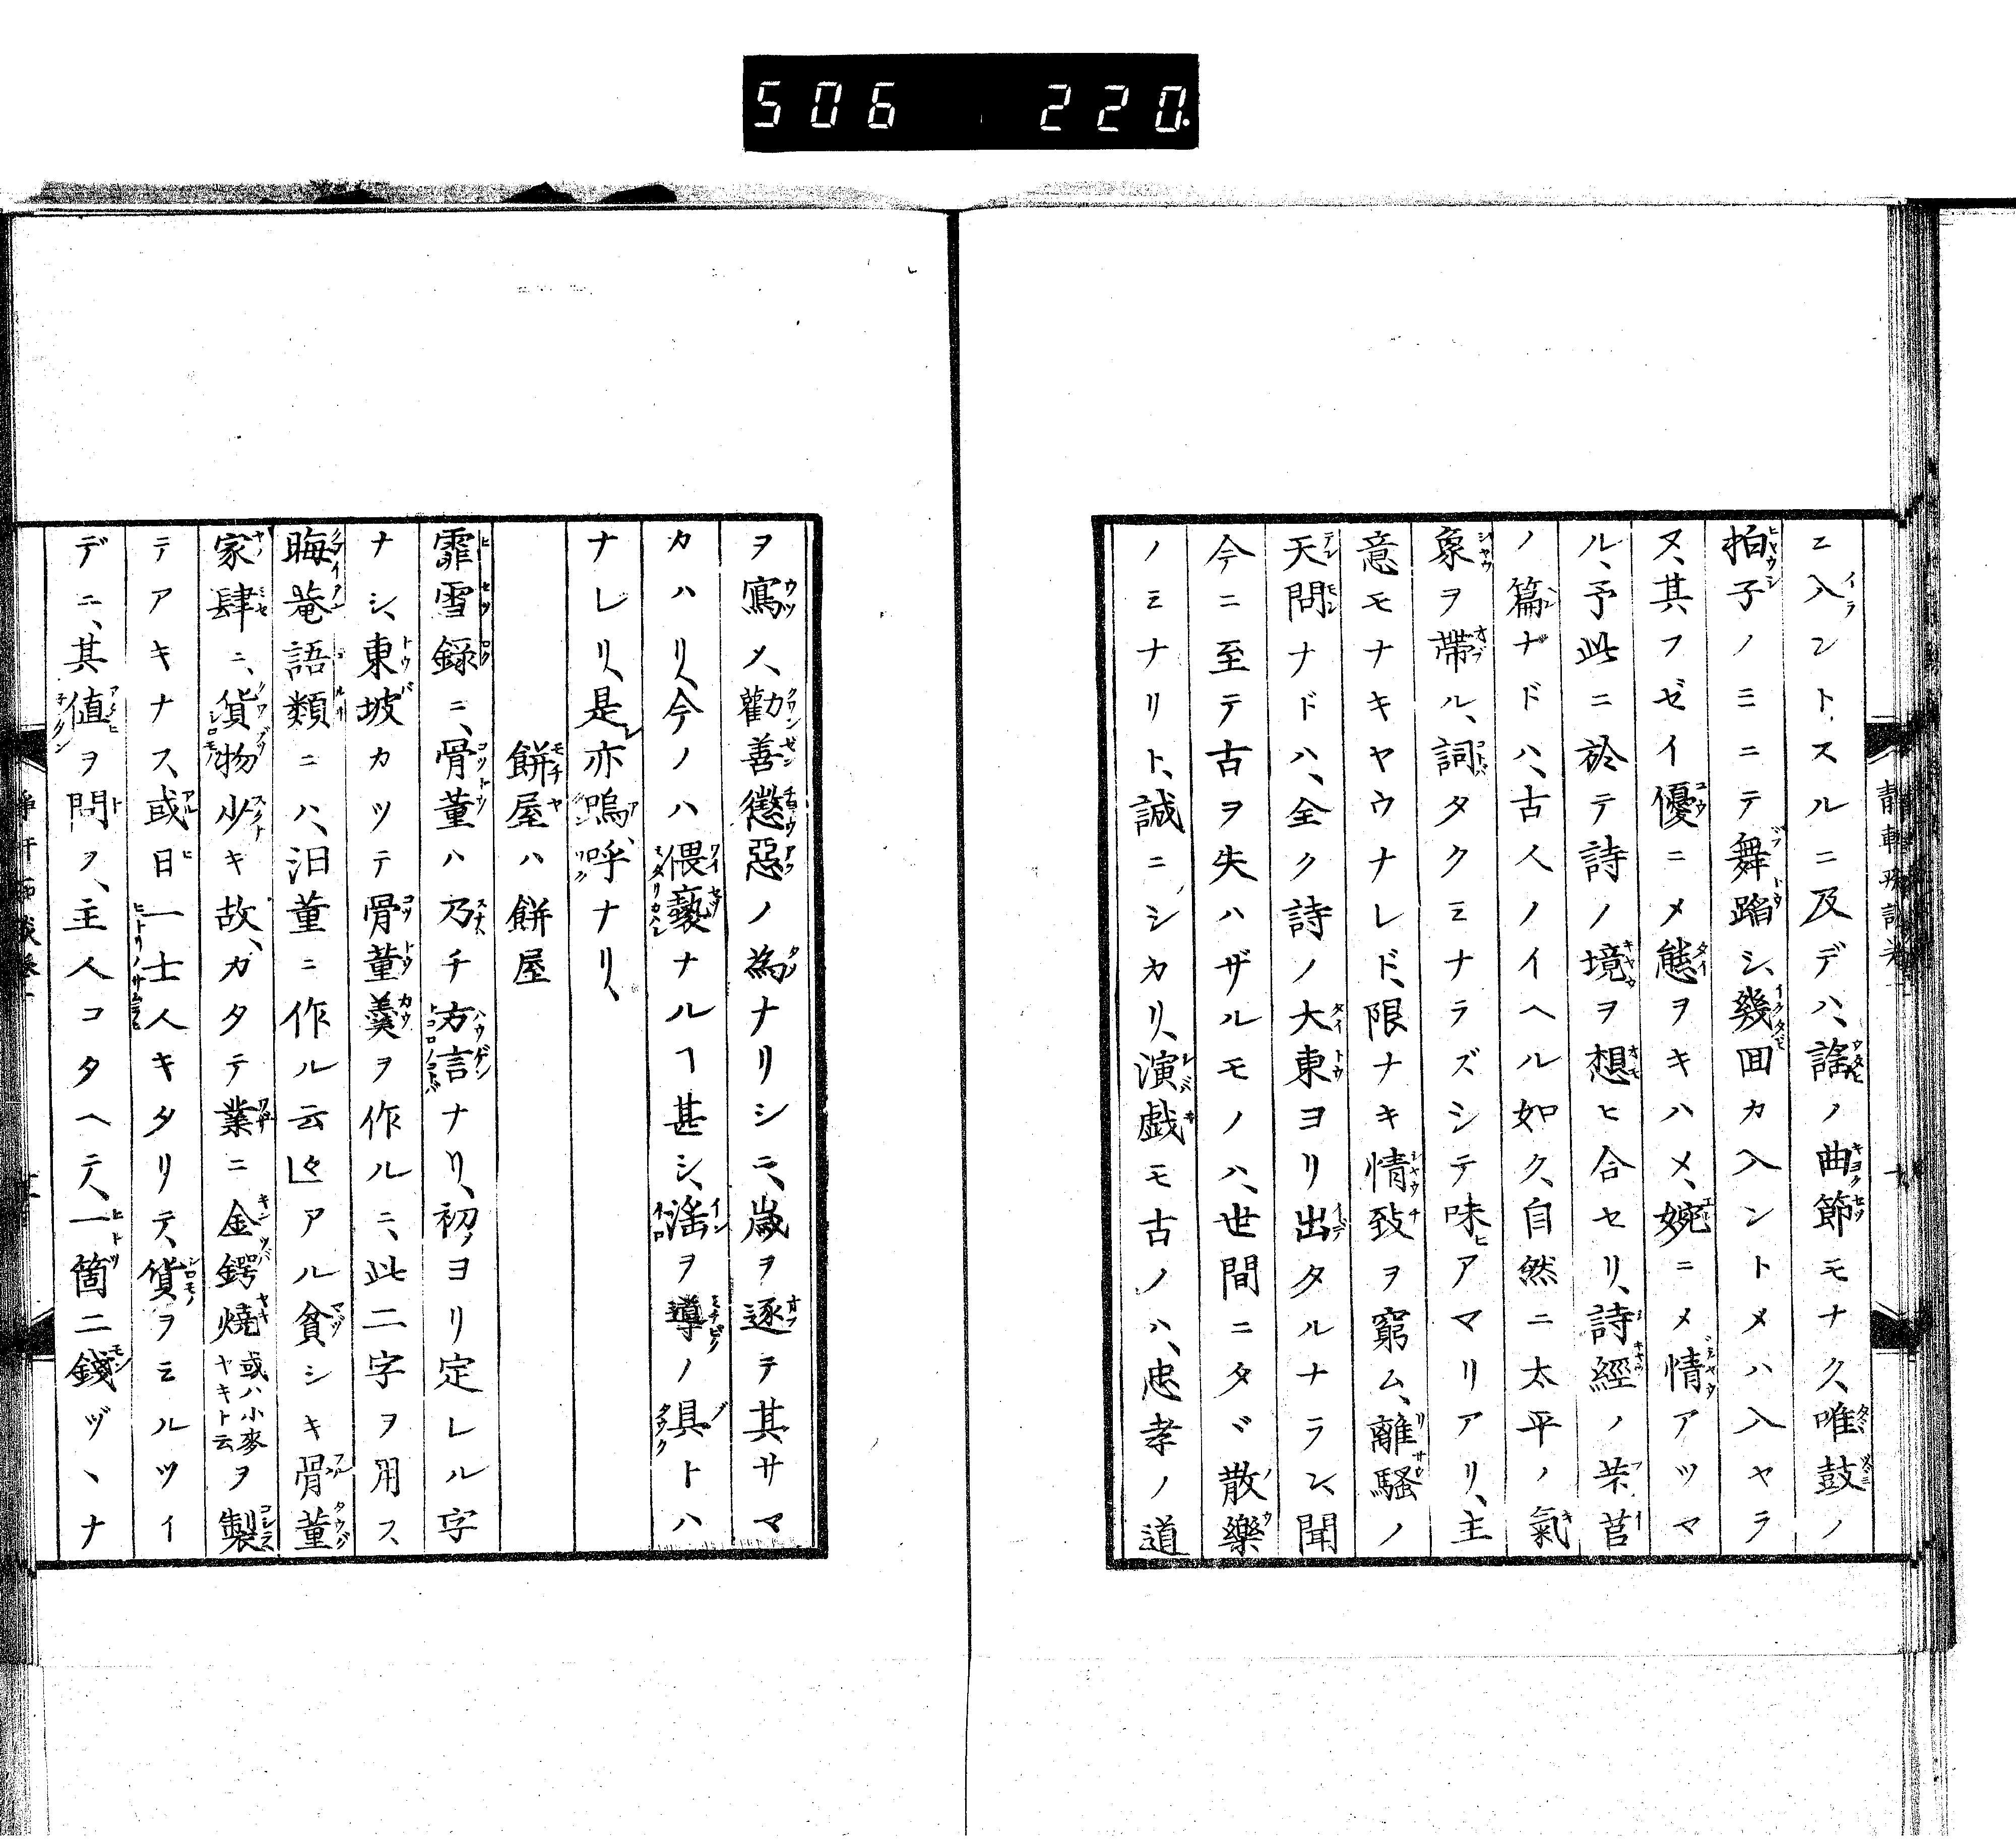 506 220.
ニ入ントスルニ及デハ、謡ノ曲節モナク、唯鼓ノ
拍子ノミニテ舞蹈シ、幾囬カ入ントメハ入ヤラ
ヌ、其フゼイ優ニメ態ヲキハメ、婉ニメ情アツマ
ル、予此ニ於テ詩ノ境ヲ想ヒ合セリ、詩經ノ芣苢
ノ篇ナドハ、古人ノイヘル如ク、自然ニ太平ノ氣
象ヲ帶ル、詞タクミナラズシテ味ヒアマリアリ、主
意モナキヤウナレド、限ナキ情致ヲ窮ム、離騷ノ
天問ナドハ、全ク詩ノ大東ヨリ出タルナラン、聞
今ニ至テ古ヲ失ハザルモノハ、世間ニタヾ散樂
ノミナリト、誠ニシカリ、演戯モ古ノハ、忠孝ノ道
ヲ寫メ、勸善懲惡ノ為ナリシニ、歳ヲ逐テ其サマ
カハリ、今ノハ偎褻ナルヿ甚シ、滛ヲ導ノ具トハ
ナレリ、是亦嗚呼ナリ、
餅屋ハ餅屋
霏雪録ニ、骨董ハ乃チ方言ナリ、初ヨリ定レル字
ナシ、東坡カツテ骨董羹ヲ作ルニ、此二字ヲ用ス
晦菴語類ニハ、汨董ニ作ル云〻アル貧シキ骨董
家肆ニ、貨物少キ故、カタテ業ニ金鍔燒或ハ小麥ヤキト云ヲ製
テアキナス、或日一士人キタリテ、貨ヲミルツイ
デニ、其値ヲ問フ、主人コタヘテ、一箇二錢ヅヽナ